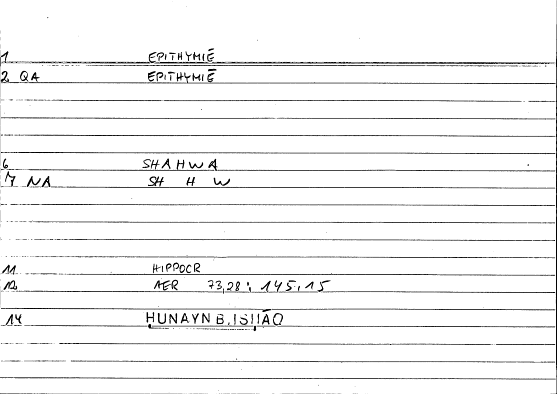 1 EPITHYMIĒ
2 QA EPITHYMIĒ
6 SHAHWA
7 NA SH H W
11 HIPPOCR
12 AER 73,28: 145,15
14 HUNAYN B. ISHĀQ